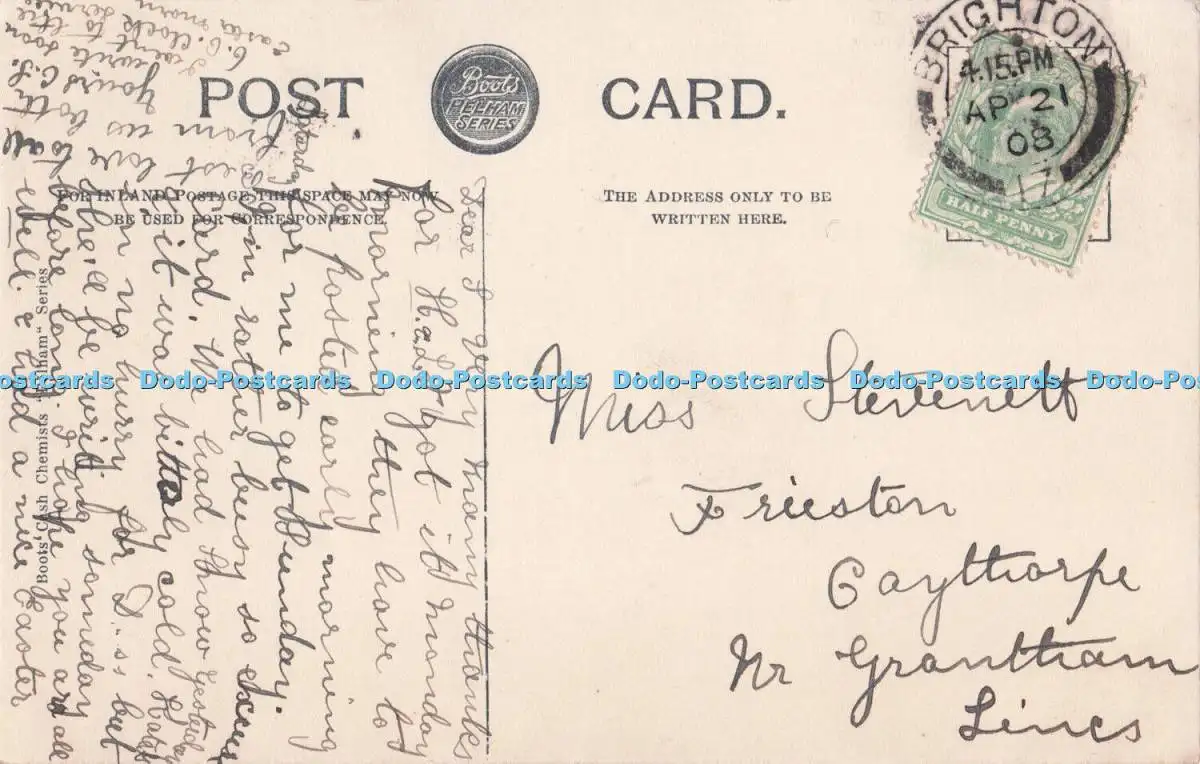 POST CARD.
Boots
PELHAM
SERIES
FOR INLAND POSTAGE THIS SPACE MAY NOW
BE USED FOR CORRESPONDENCE
THE ADDRESS ONLY TO BE
WRITTEN HERE.
BRIGHTON
4.15.PM
AP 21
08
17
HALF PENNY
Miss Stevenett
Frieston
Caythorpe
Nr Grantham
Lincs
Dear I very many thanks
for H. &
got it Monday
morning they have to
be posted early
morning
Saturday
for me to get Sunday.
in rather busy so excuse
card. We had snow yesterday
& it was bitterly cold.
in no hurry for D..ss but
she'll be writing someday
before long. I hope you are all
well & had a nice Easter
best love to all
from us both
yours C. S.
I can't write soon
to the
6. O'clock service
Easter morn
Boots' Cash Chemists "Pelham" Series
Dodo-Postcards Dodo-Postcards Dodo-Postcards Dodo-Postcards Dodo-Postcards Dodo-Postcards